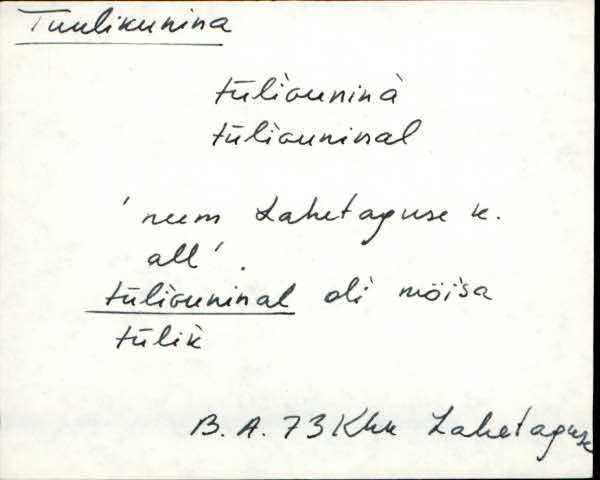 Tuulikunina
tūliɢuninà
tūliɢuninal
'neem Lahetaguse k.
all'.
tūliɢuninal oli mȯisa
tūlik̀
B. A. 73 Khn Lahetaguse